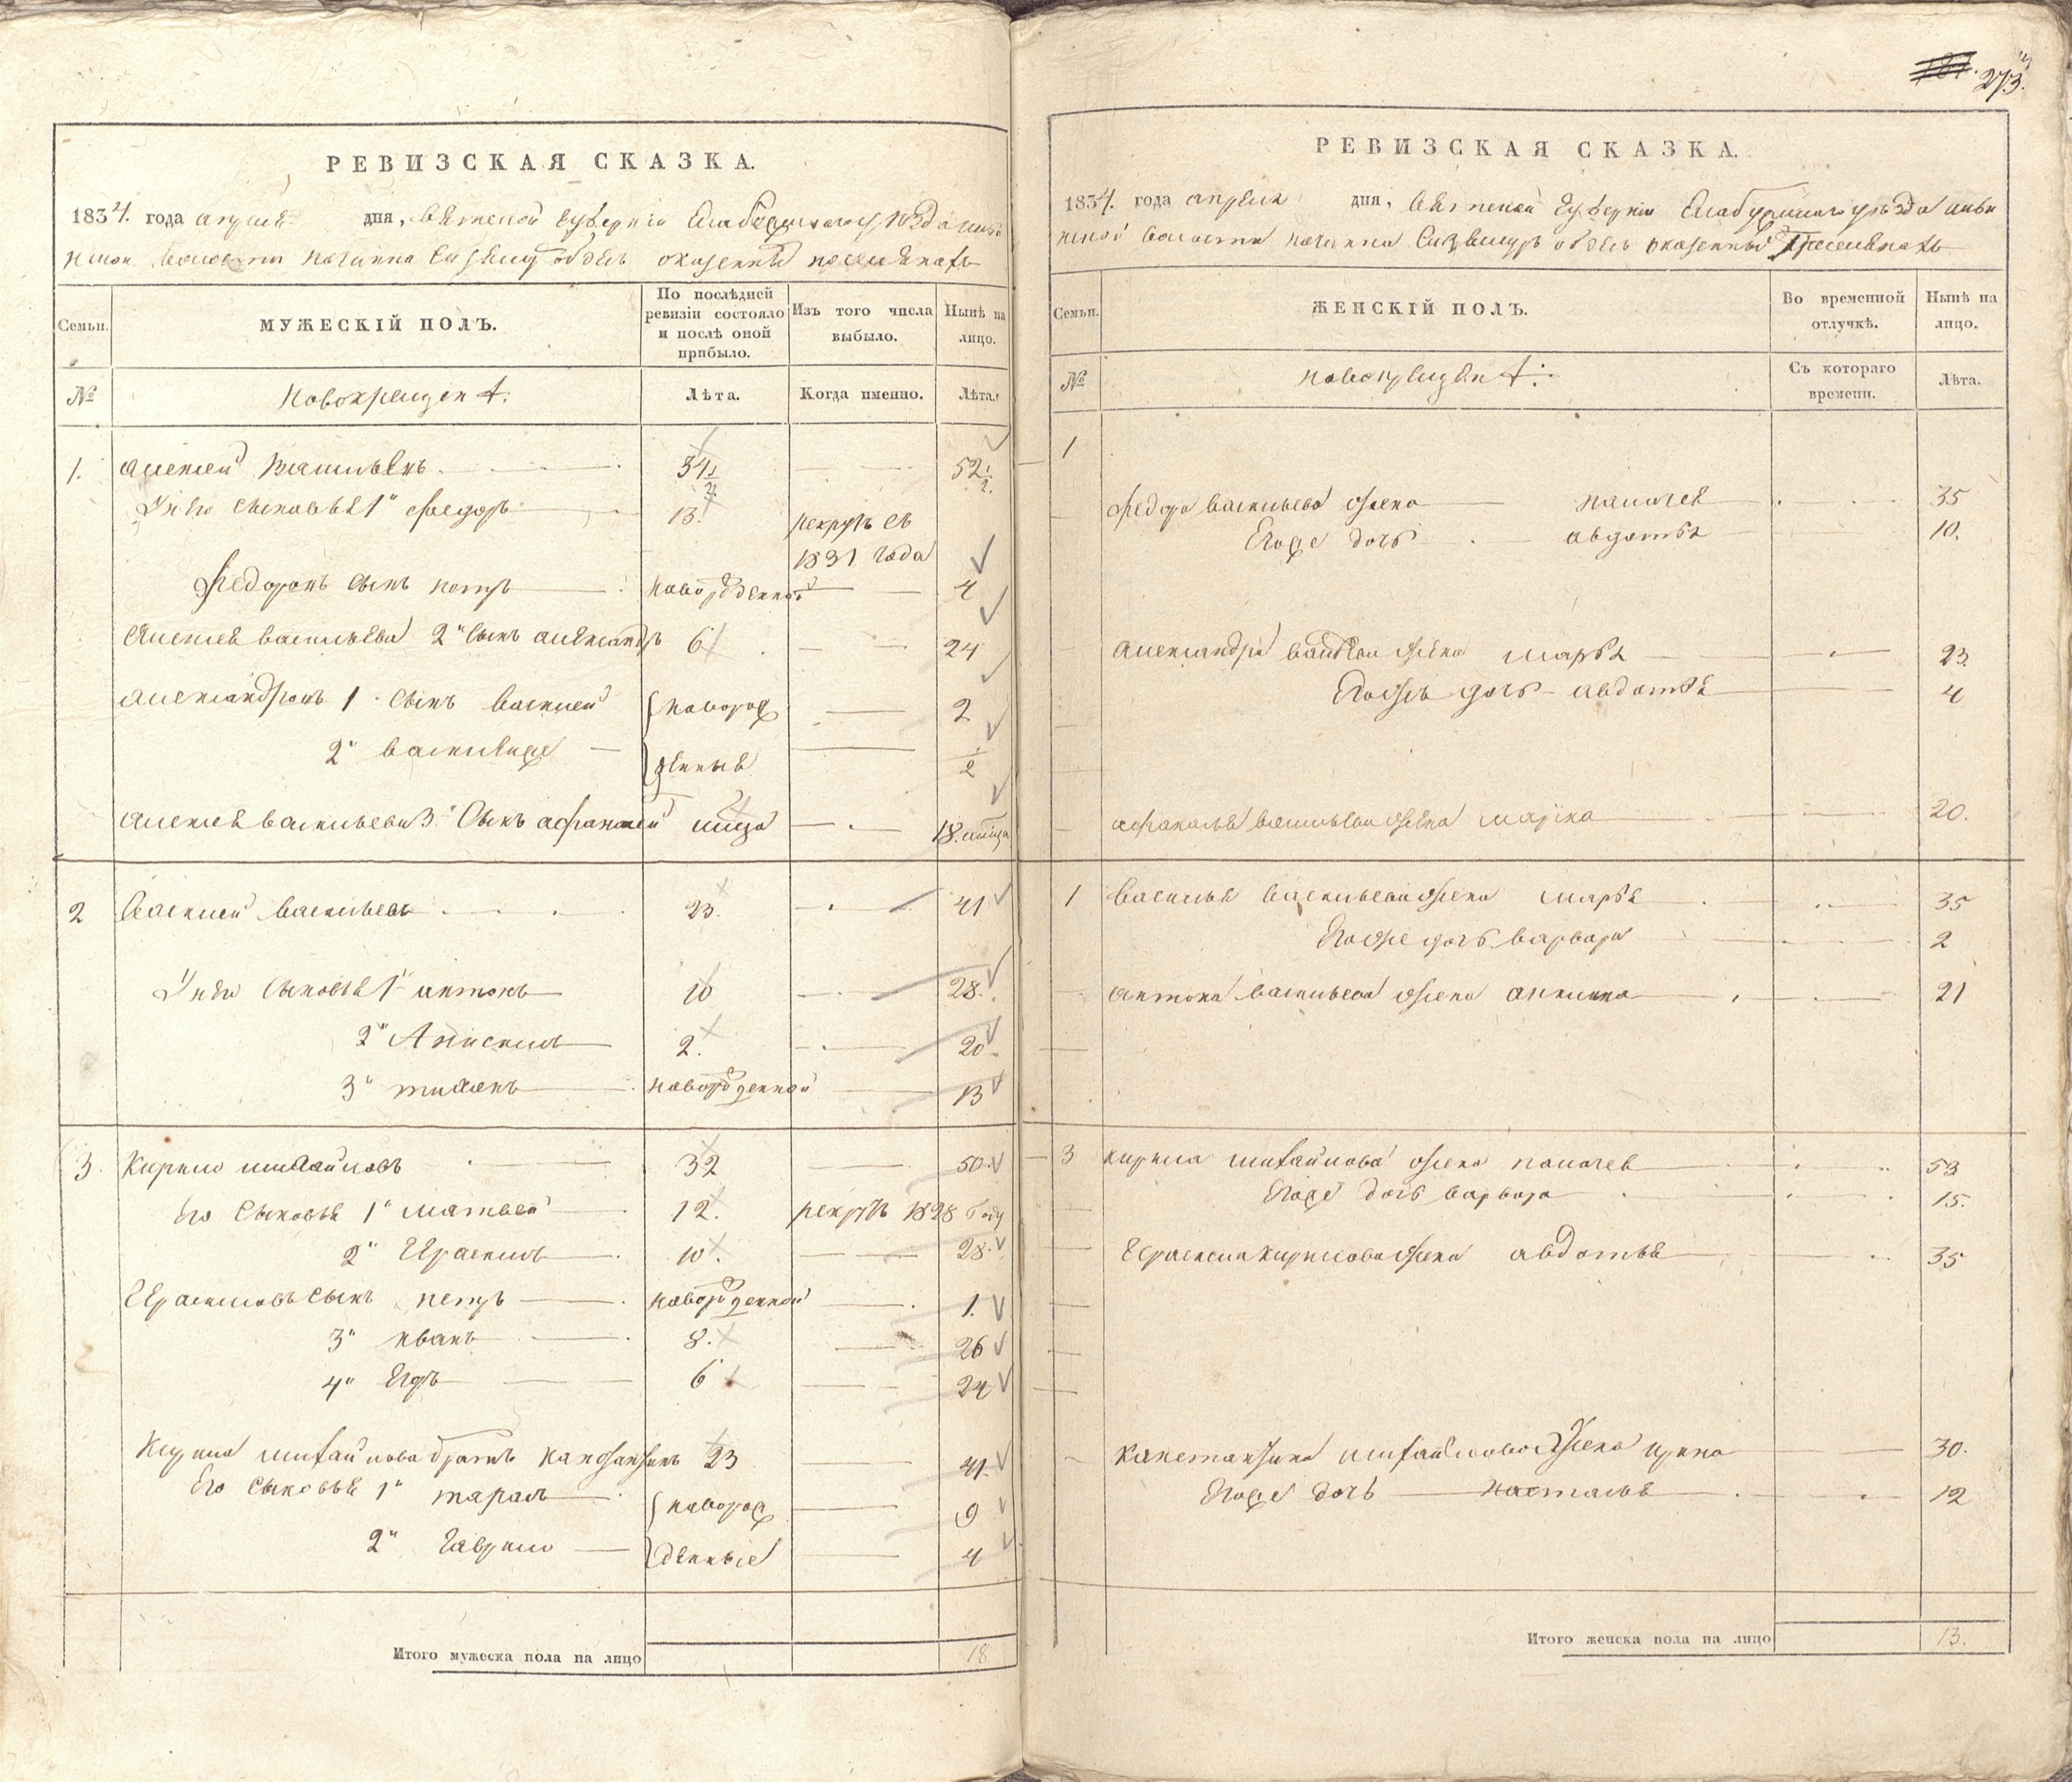 273.
РЕВИЗСКАЯ СКАЗКА.
1834. года апреля дня, вятской губернии Елабужского уѣзда
волости починка об оказенных поселянахъ
Семьи.
МУЖЕСКІЙ ПОЛЪ.
По послѣдней ревизіи состояло и послѣ оной прибыло.
Изъ того числа выбыло.
Нынѣ на лицо.
№
Новокрещен
Лѣта.
Когда именно.
Лѣта.
1. Алексей Васильевъ 34 1/2 52 1/2
У него сыновья 1й Федоръ 13. рекрутъ съ
1831 года
Федоровъ сынъ петръ новорожденной 4
Алексея васильева 2й сынъ александръ 6 24
александровъ 1 сынъ василей новорож 2
2й денные 1/2
Алексея васильева 3й сынъ афанасей 18
2 Василей васильевъ 23. 41
У него сыновья 1й антонъ 10 28.
2й Анисимъ 2. 20
3й тихонъ новорожденной 13
3. Кирило михайловъ 32 50
Его сыновья 1й матвей 12. рекрутъ 1828 году
2й Герасимъ 10. 28.
Герасимовъ сынъ петръ новорожденной 1.
3й иванъ 8. 26
4й Егоръ 6 24
Кирила михайлова братъ 23 41.
Его сыновья 1й тарасъ новорож 9
2й Гаврило денные 4
Итого мужеска пола на лицо 18
РЕВИЗСКАЯ СКАЗКА.
1834. года апреля дня, вятской губернии Елабужского уѣзда
волости починка об оказенных поселянахъ
Семьи.
ЖЕНСКІЙ ПОЛЪ.
Во временной отлучкѣ.
Нынѣ на лицо.
№
новокрещен
Съ котораго времени.
Лѣта.
1
Федора васильева жена 35
Егоже дочь авдотья 10.
александра жена марья 23.
Егожъ дочь авдотья 4
афанасья васильева жена 20.
1 Василья васильева жена марья 35
Егоже дочь варвара 2
антона васильева жена 21
3 кирила михайлова жена 53
Егоже дочь варвара 15.
Герасима кирилова жена авдотья 35
михайлова жена 30.
Егоже дочь настасья 12
Итого женска пола на лицо 13.